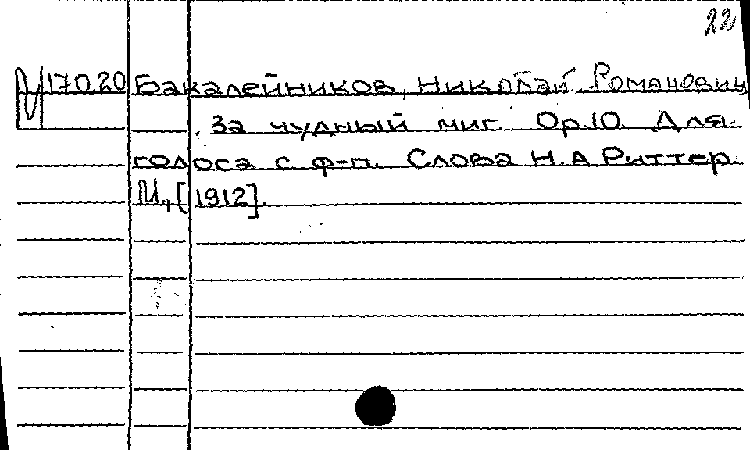 22
17020 Бакалейников, Николай Романович
За чудный миг. Op.10. Для
голоса с ф-п. Слова Н.А Риттер.
М., [1912].